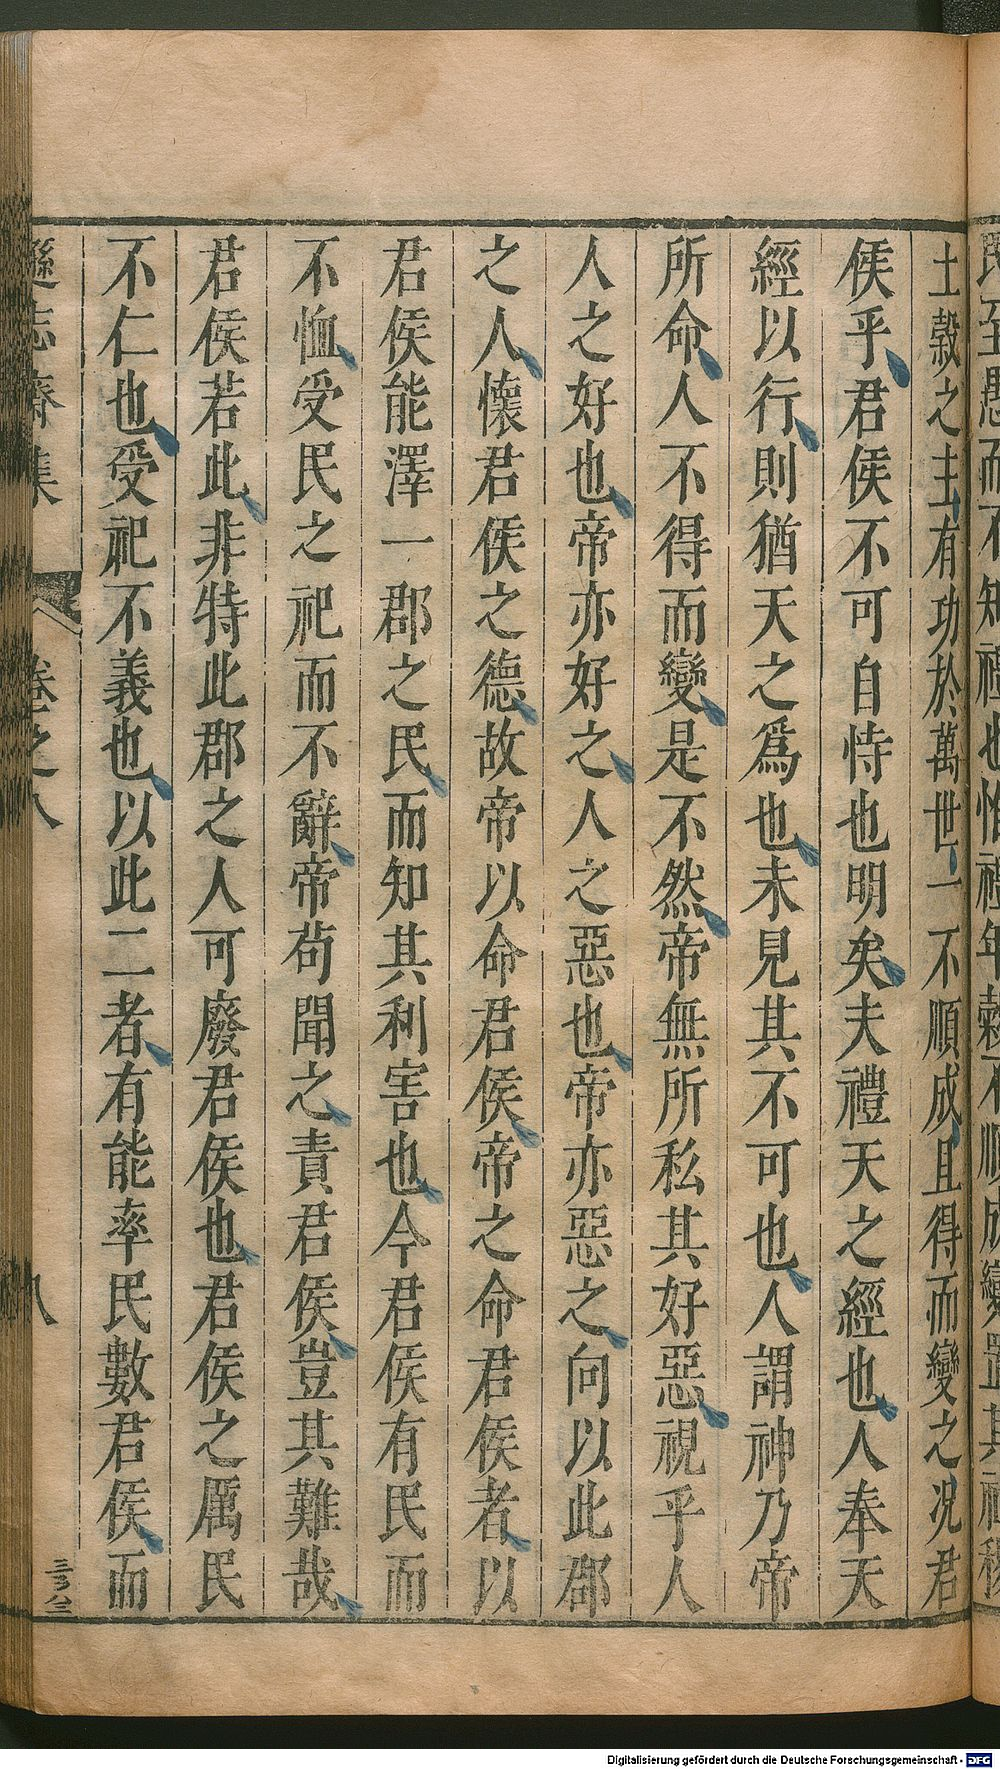 土穀之主有功於萬世一不順成且得而變之况君
侯乎君侯不可自恃也明矣夫禮天之經也人奉天
經以行則猶天之爲也未見其不可也人謂神乃帝
所命人不得而變是不然帝無所私其好惡視乎人
人之好也帝亦好之人之惡也帝亦惡之向以此郡
之人懷君侯之德故帝以命君侯帝之命君侯者以
君侯能澤一郡之民而知其利害也今君侯有民而
不恤受民之祀而不辭帝苟聞之責君侯豈其難哉
君侯若此非特此郡之人可廢君侯也君侯之厲民
不仁也受祀不義也以此二者有能率民數君侯而
遜志齋集 卷之八 八
Digitalisierung gefördert durch die Deutsche Forschungsgemeinschaft - DFG